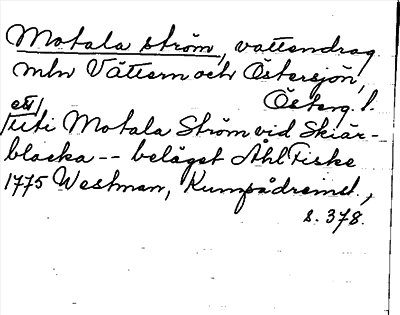 Motala ström, vattendrag
mln Vättern och Östersjön,
Österg. l.
ett/
/uti Motala Ström vid Skiär-
blacka -- beläget Åhl Fiske
1775 Westman, Kumpådreinst.,
s. 378.